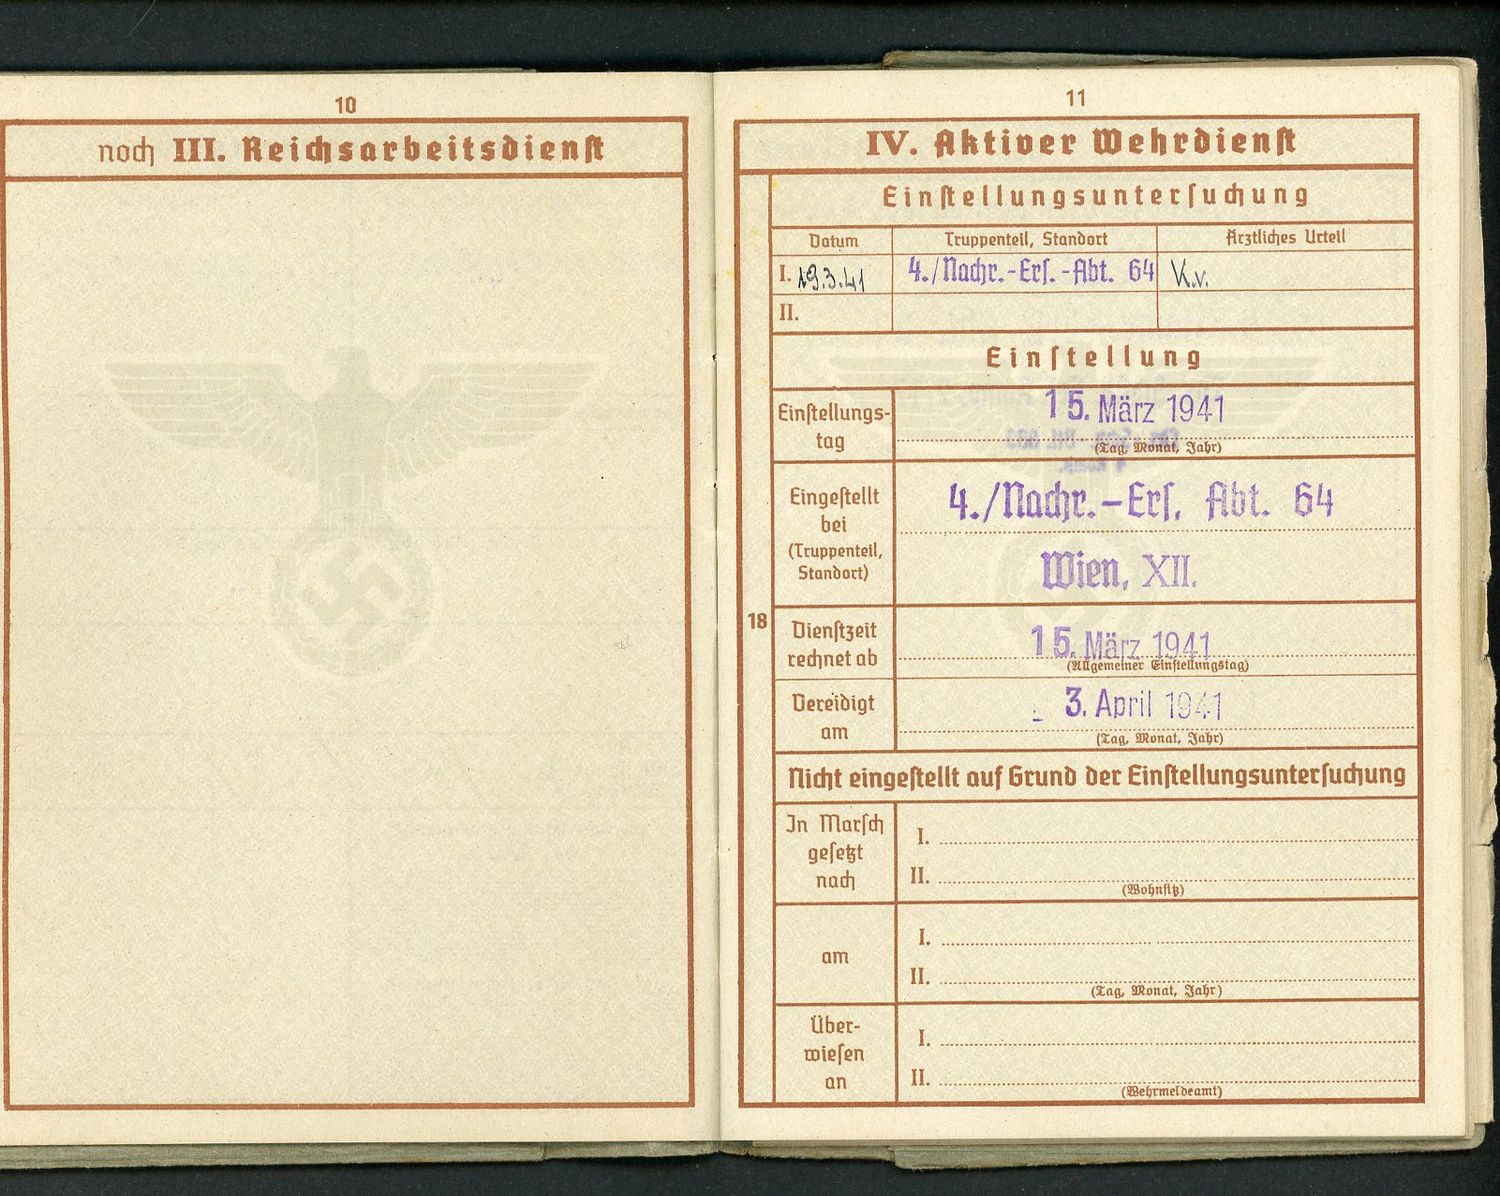 10
noch III. Reichsarbeitsdienst
11
IV. Aktiver Wehrdienst
Einſtellungsunterſuchung
Datum Truppenteil, Standort Ärztliches Urteil
I. 19.3.41 4./Nachr.-Erſ.-Abt. 64 K.v.
II.
Einſtellung
Einſtellungs-
tag
15. März 1941
(Tag, Monat, Jahr)
Eingeſtellt
bei
(Truppenteil,
Standort)
4./Nachr.-Erſ. Abt. 64
Wien, XII.
18
Dienſtzeit
rechnet ab
15. März 1941
(Allgemeiner Einſtellungstag)
Vereidigt
am
3. April 1941
(Tag, Monat, Jahr)
Nicht eingeſtellt auf Grund der Einſtellungsunterſuchung
In Marſch
geſetzt
nach
I.
II.
(Wohnſitz)
am
I.
II.
(Tag, Monat, Jahr)
Über-
wieſen
an
I.
II.
(Wehrmeldeamt)